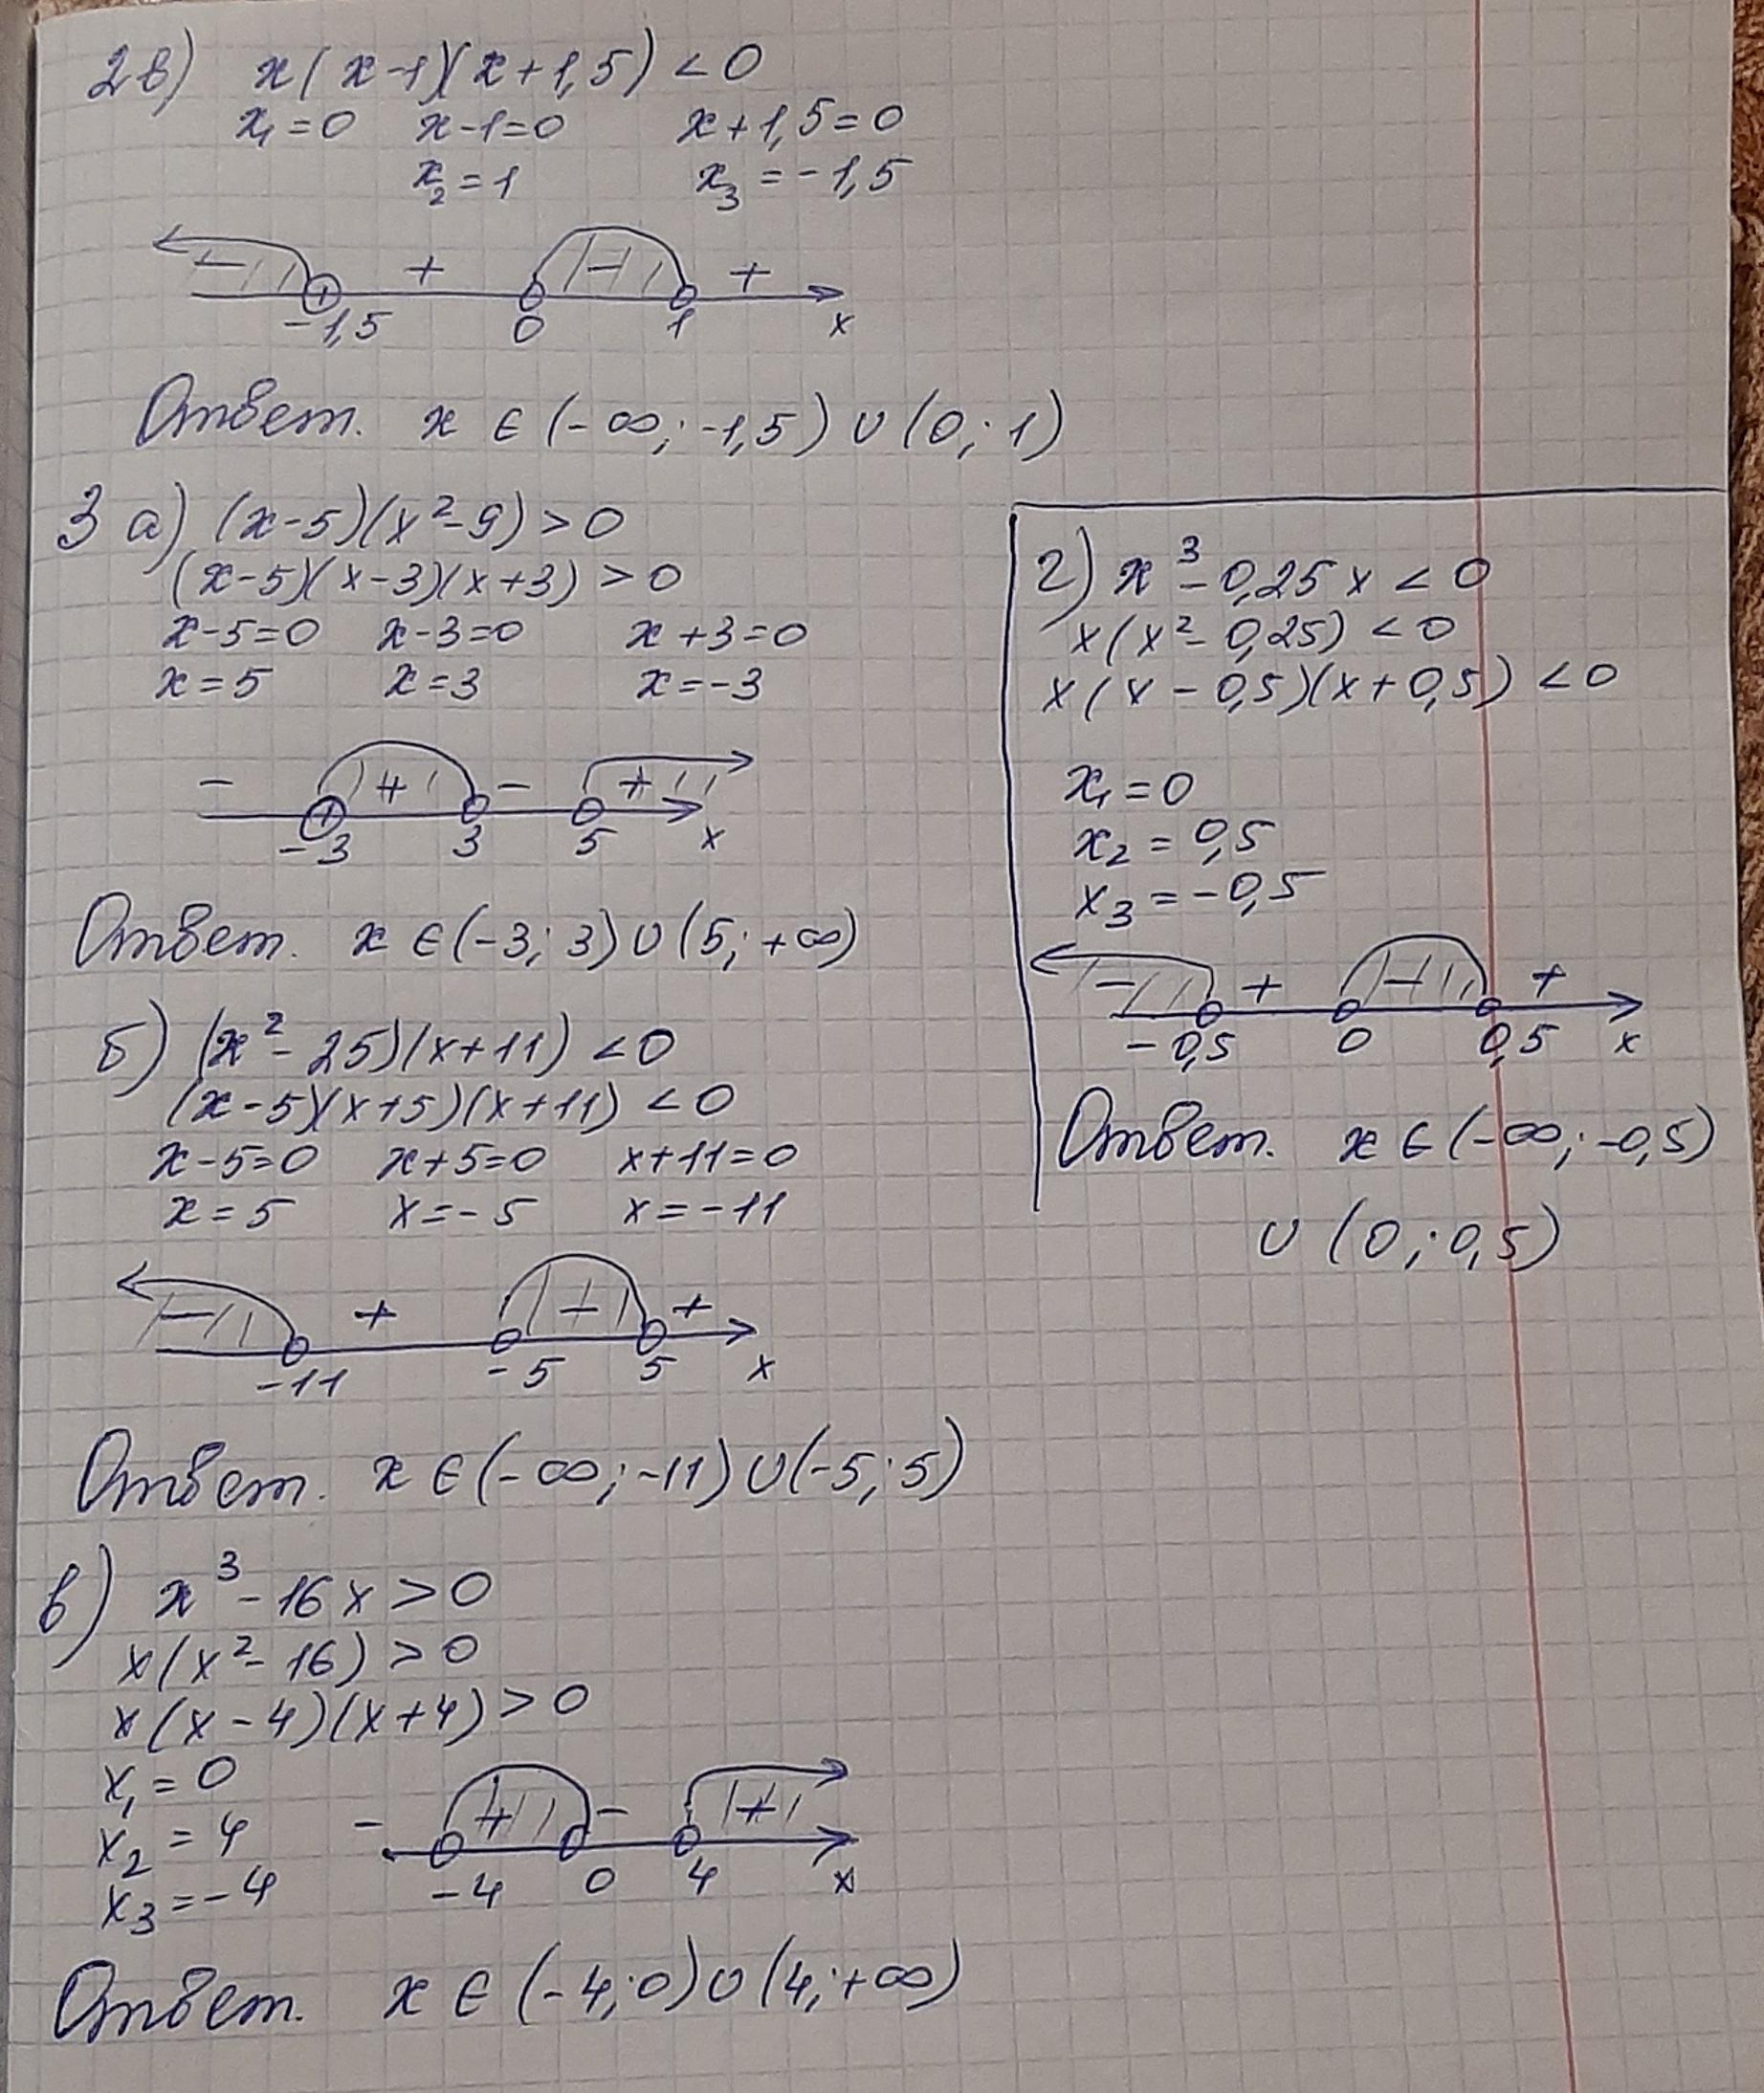 2в) x(x-1)(x+1,5)<0
x₁=0 x-1=0 x+1,5=0
x₂=1 x₃=-1,5
- + - +
-1,5 0 1 x
Ответ. x ∈ (-∞; -1,5) ∪ (0; 1)
3 а) (x-5)(x²-9)>0
(x-5)(x-3)(x+3)>0
x-5=0 x-3=0 x+3=0
x=5 x=3 x=-3
- + - +
-3 3 5 x
Ответ. x ∈ (-3; 3) ∪ (5; +∞)
б) (x²-25)(x+11)<0
(x-5)(x+5)(x+11)<0
x-5=0 x+5=0 x+11=0
x=5 x=-5 x=-11
- + - +
-11 -5 5 x
Ответ. x ∈ (-∞; -11) ∪ (-5; 5)
в) x³-16x>0
x(x²-16)>0
x(x-4)(x+4)>0
x₁=0
x₂=4
x₃=-4
- + - +
-4 0 4 x
Ответ. x ∈ (-4; 0) ∪ (4; +∞)
г) x³-0,25x<0
x(x²-0,25)<0
x(x-0,5)(x+0,5)<0
x₁=0
x₂=0,5
x₃=-0,5
- + - +
-0,5 0 0,5 x
Ответ. x ∈ (-∞; -0,5)
∪ (0; 0,5)